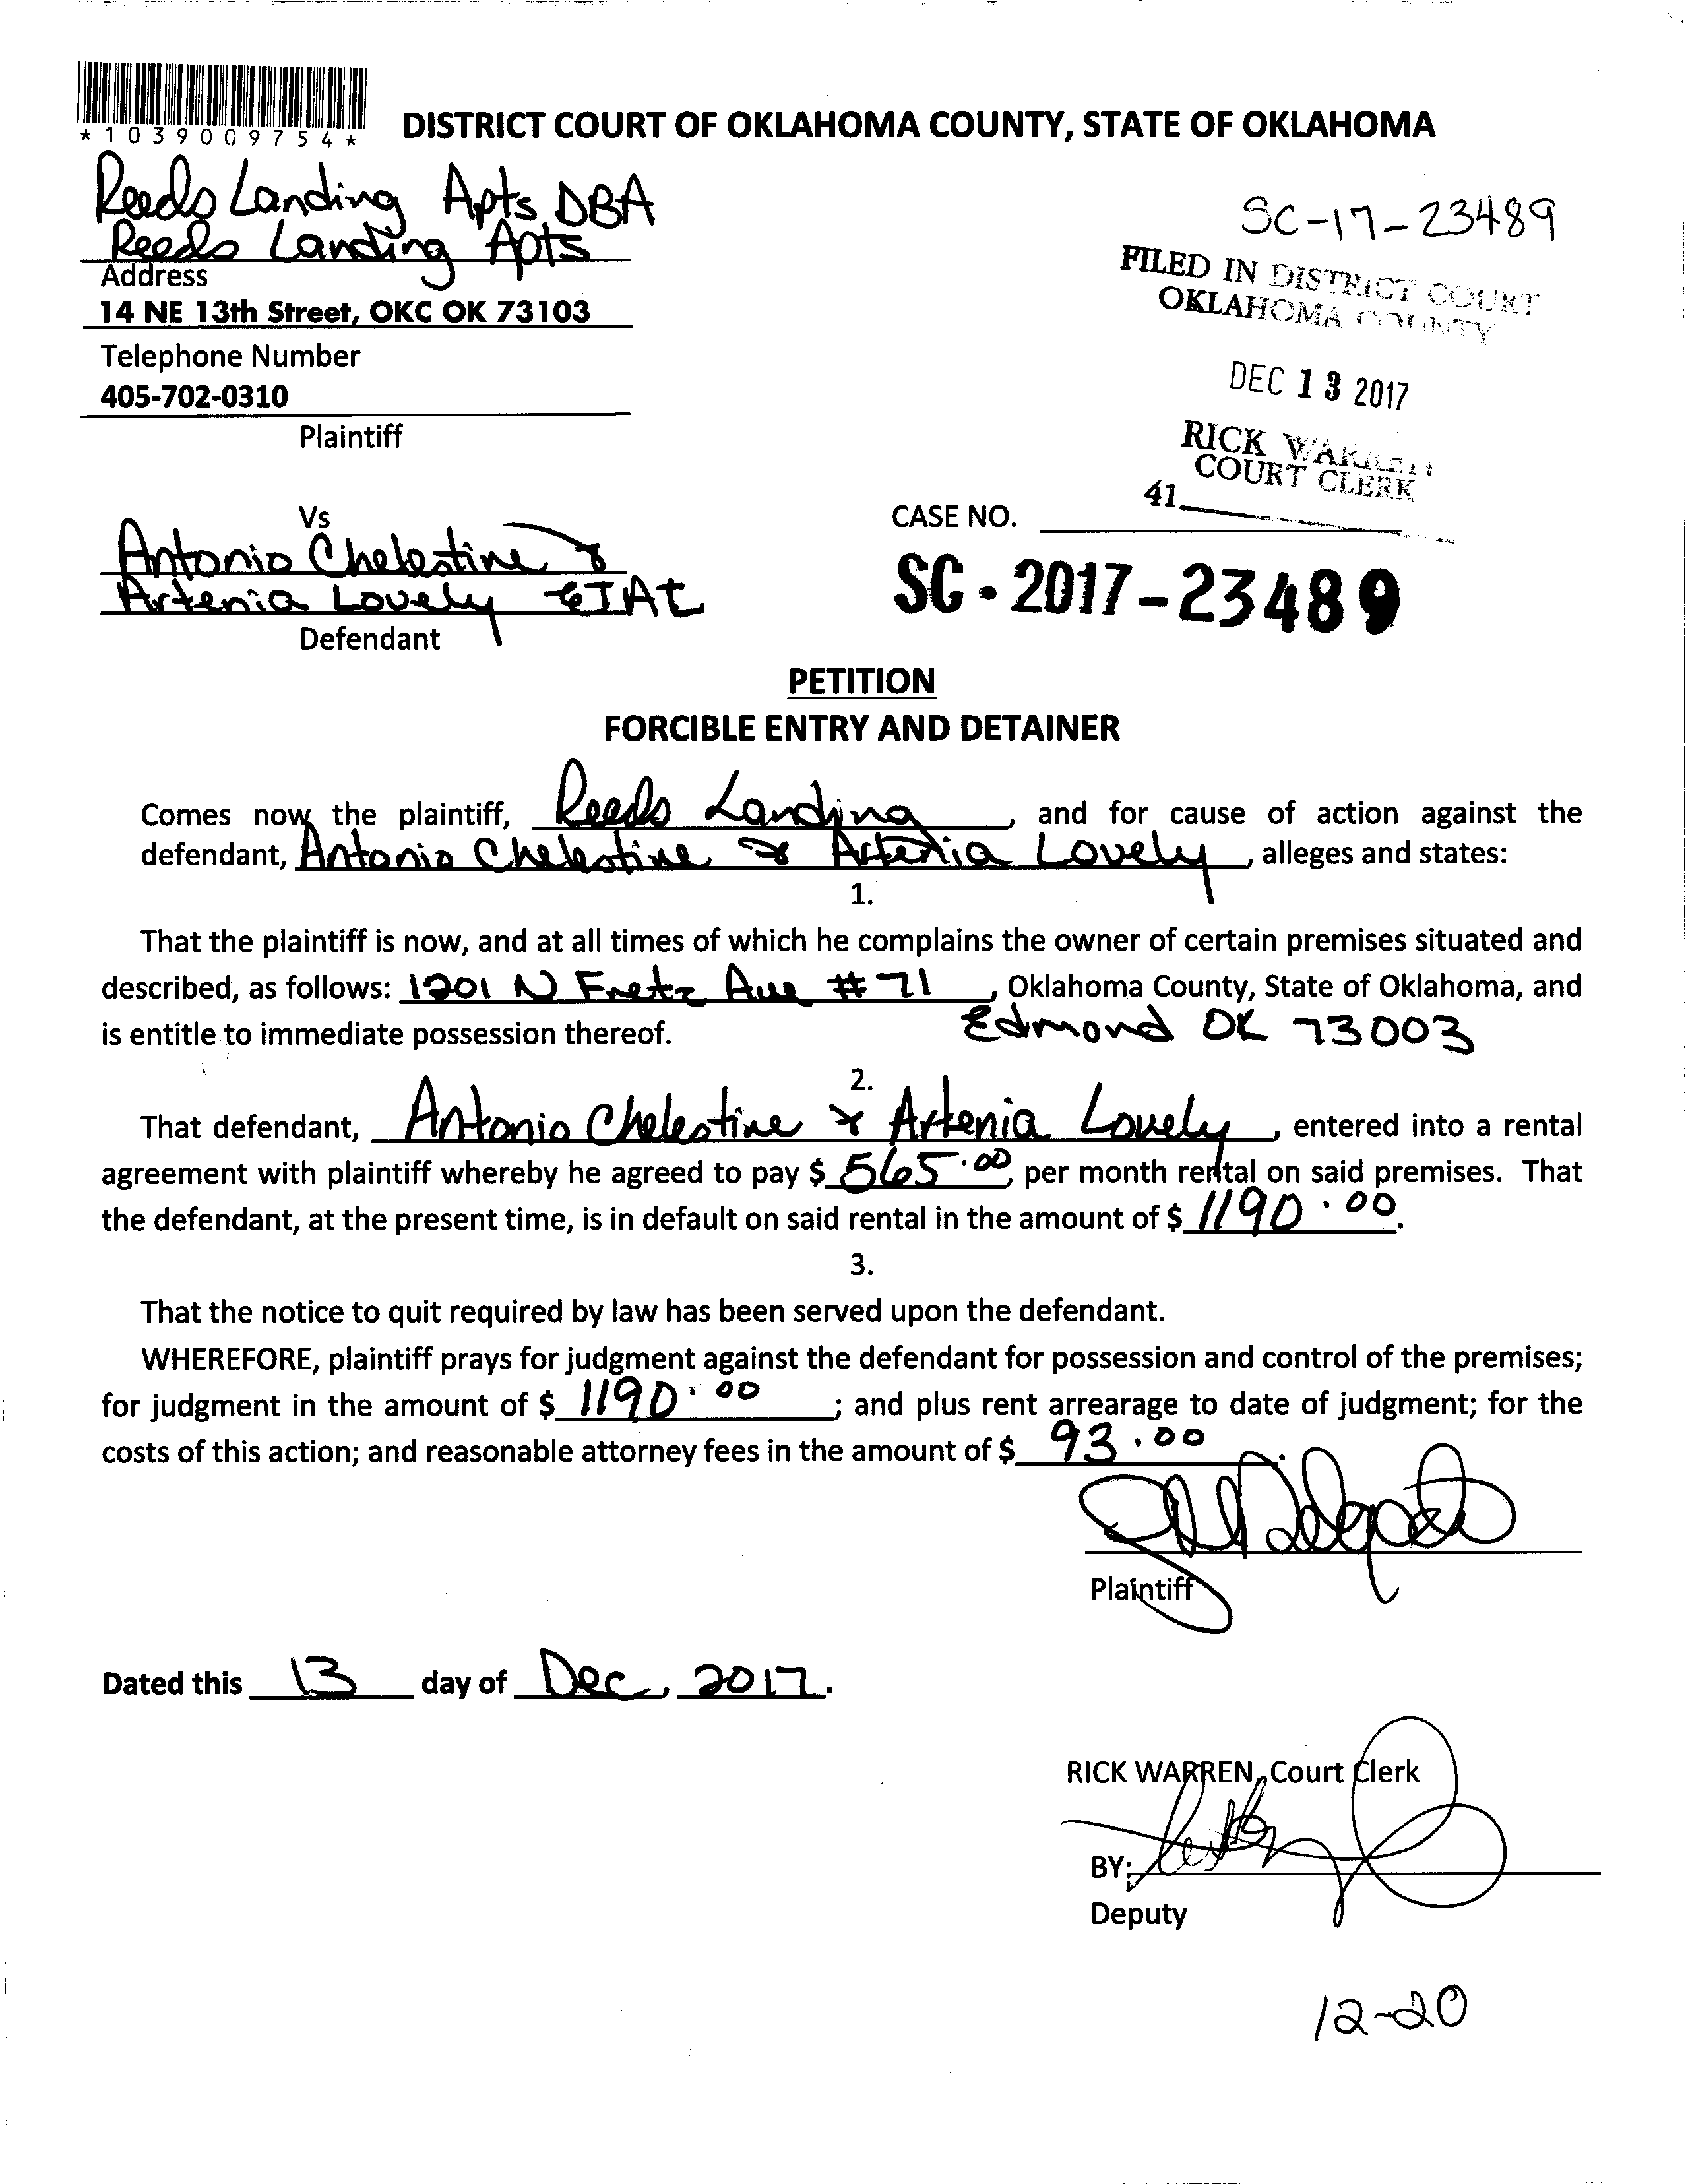 *1039009754*
DISTRICT COURT OF OKLAHOMA COUNTY, STATE OF OKLAHOMA
Reeds Landing Apts DBA
Reeds Landing Apts
Address
14 NE 13th Street, OKC OK 73103
Telephone Number
405-702-0310
Plaintiff
SC-17-23489
FILED IN DISTRICT COURT
OKLAHOMA COUNTY
DEC 13 2017
RICK WARREN
COURT CLERK
41
Vs
Antonio Chelestine &
Artenia Lovely
Defendant
CASE NO.
SC-2017-23489
PETITION
FORCIBLE ENTRY AND DETAINER
Comes now the plaintiff, Reeds Landing, and for cause of action against the
defendant, Antonio Chelestine & Artenia Lovely, alleges and states:
1.
That the plaintiff is now, and at all times of which he complains the owner of certain premises situated and
described, as follows: 1201 N Fretz Ave # 71, Oklahoma County, State of Oklahoma, and
is entitle to immediate possession thereof. Edmond OK 73003
2.
That defendant, Antonio Chelestine & Artenia Lovely, entered into a rental
agreement with plaintiff whereby he agreed to pay $ 565.00, per month rental on said premises. That
the defendant, at the present time, is in default on said rental in the amount of $ 1190.00.
3.
That the notice to quit required by law has been served upon the defendant.
WHEREFORE, plaintiff prays for judgment against the defendant for possession and control of the premises;
for judgment in the amount of $ 1190.00; and plus rent arrearage to date of judgment; for the
costs of this action; and reasonable attorney fees in the amount of $ 93.00.
Plaintiff
Dated this 13 day of Dec, 2017.
RICK WARREN, Court Clerk
BY:
Deputy
12-20